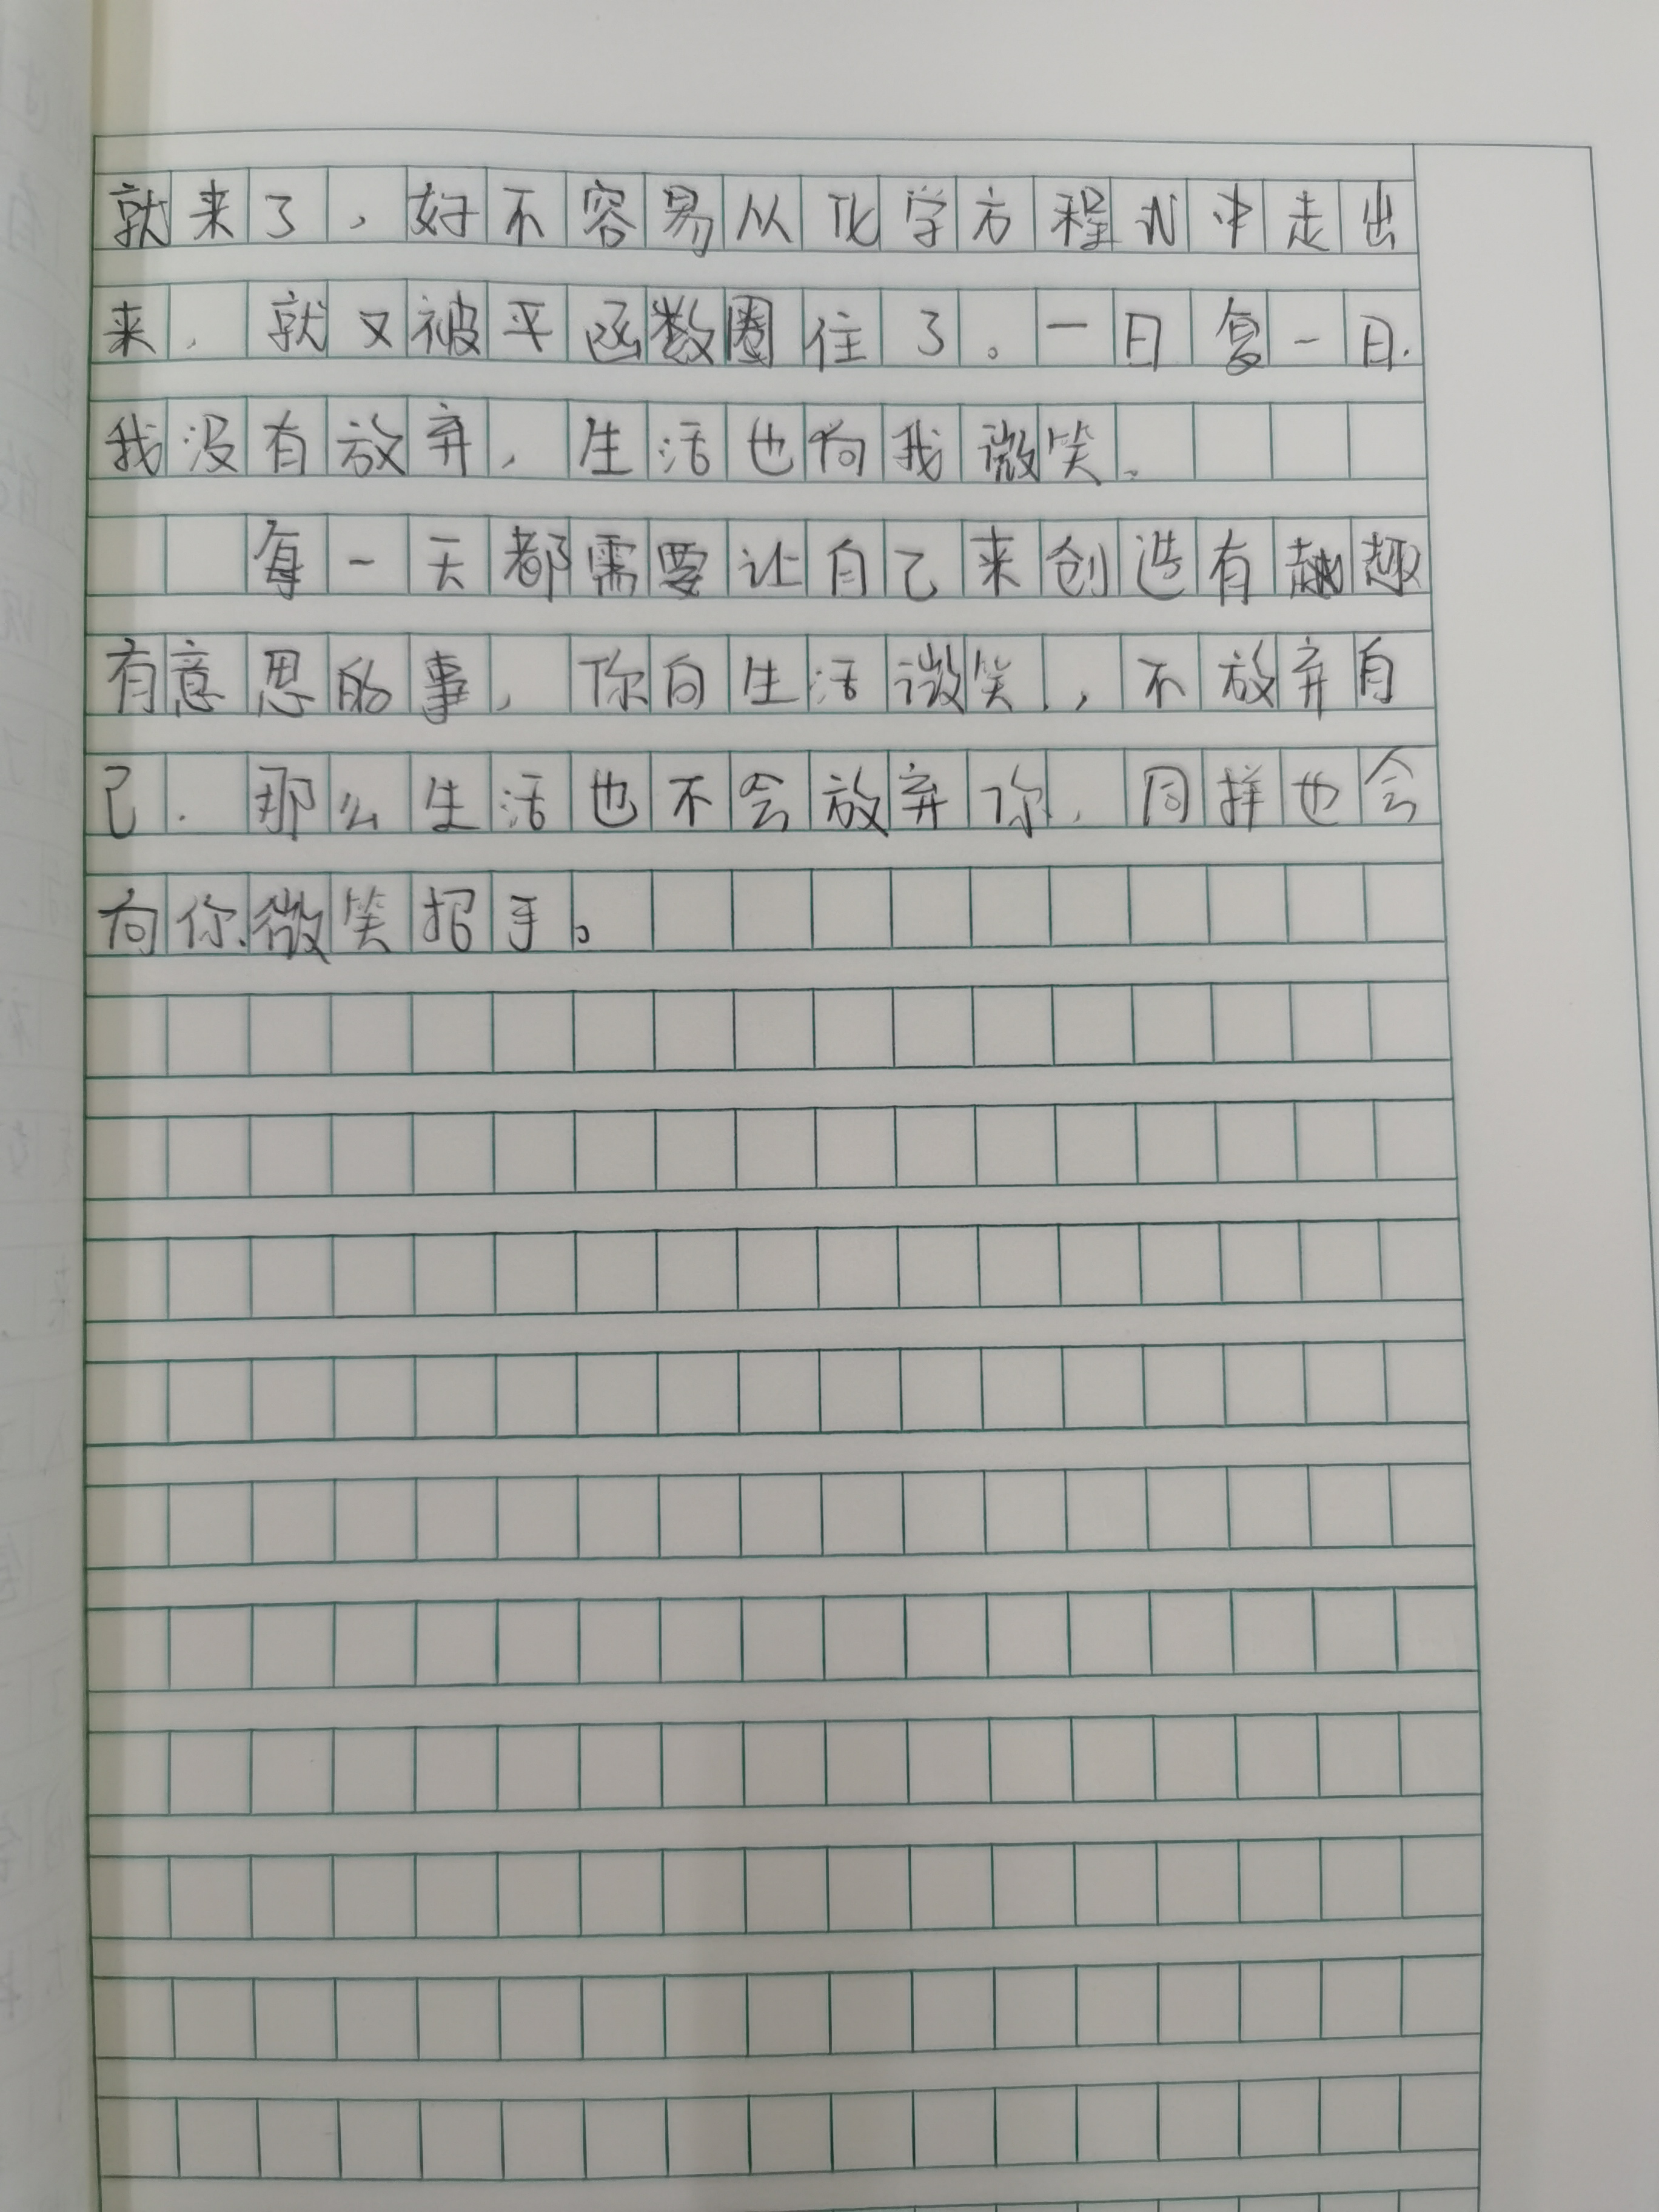 就来了，好不容易从化学方程式中走出
来，就又被平函数圈住了。一日复一日.
我没有放弃，生活也向我微笑。
每一天都需要让自己来创造有趣
有意思的事，你向生活微笑，不放弃自
己.那么生活也不会放弃你，同样也会
向你微笑招手。